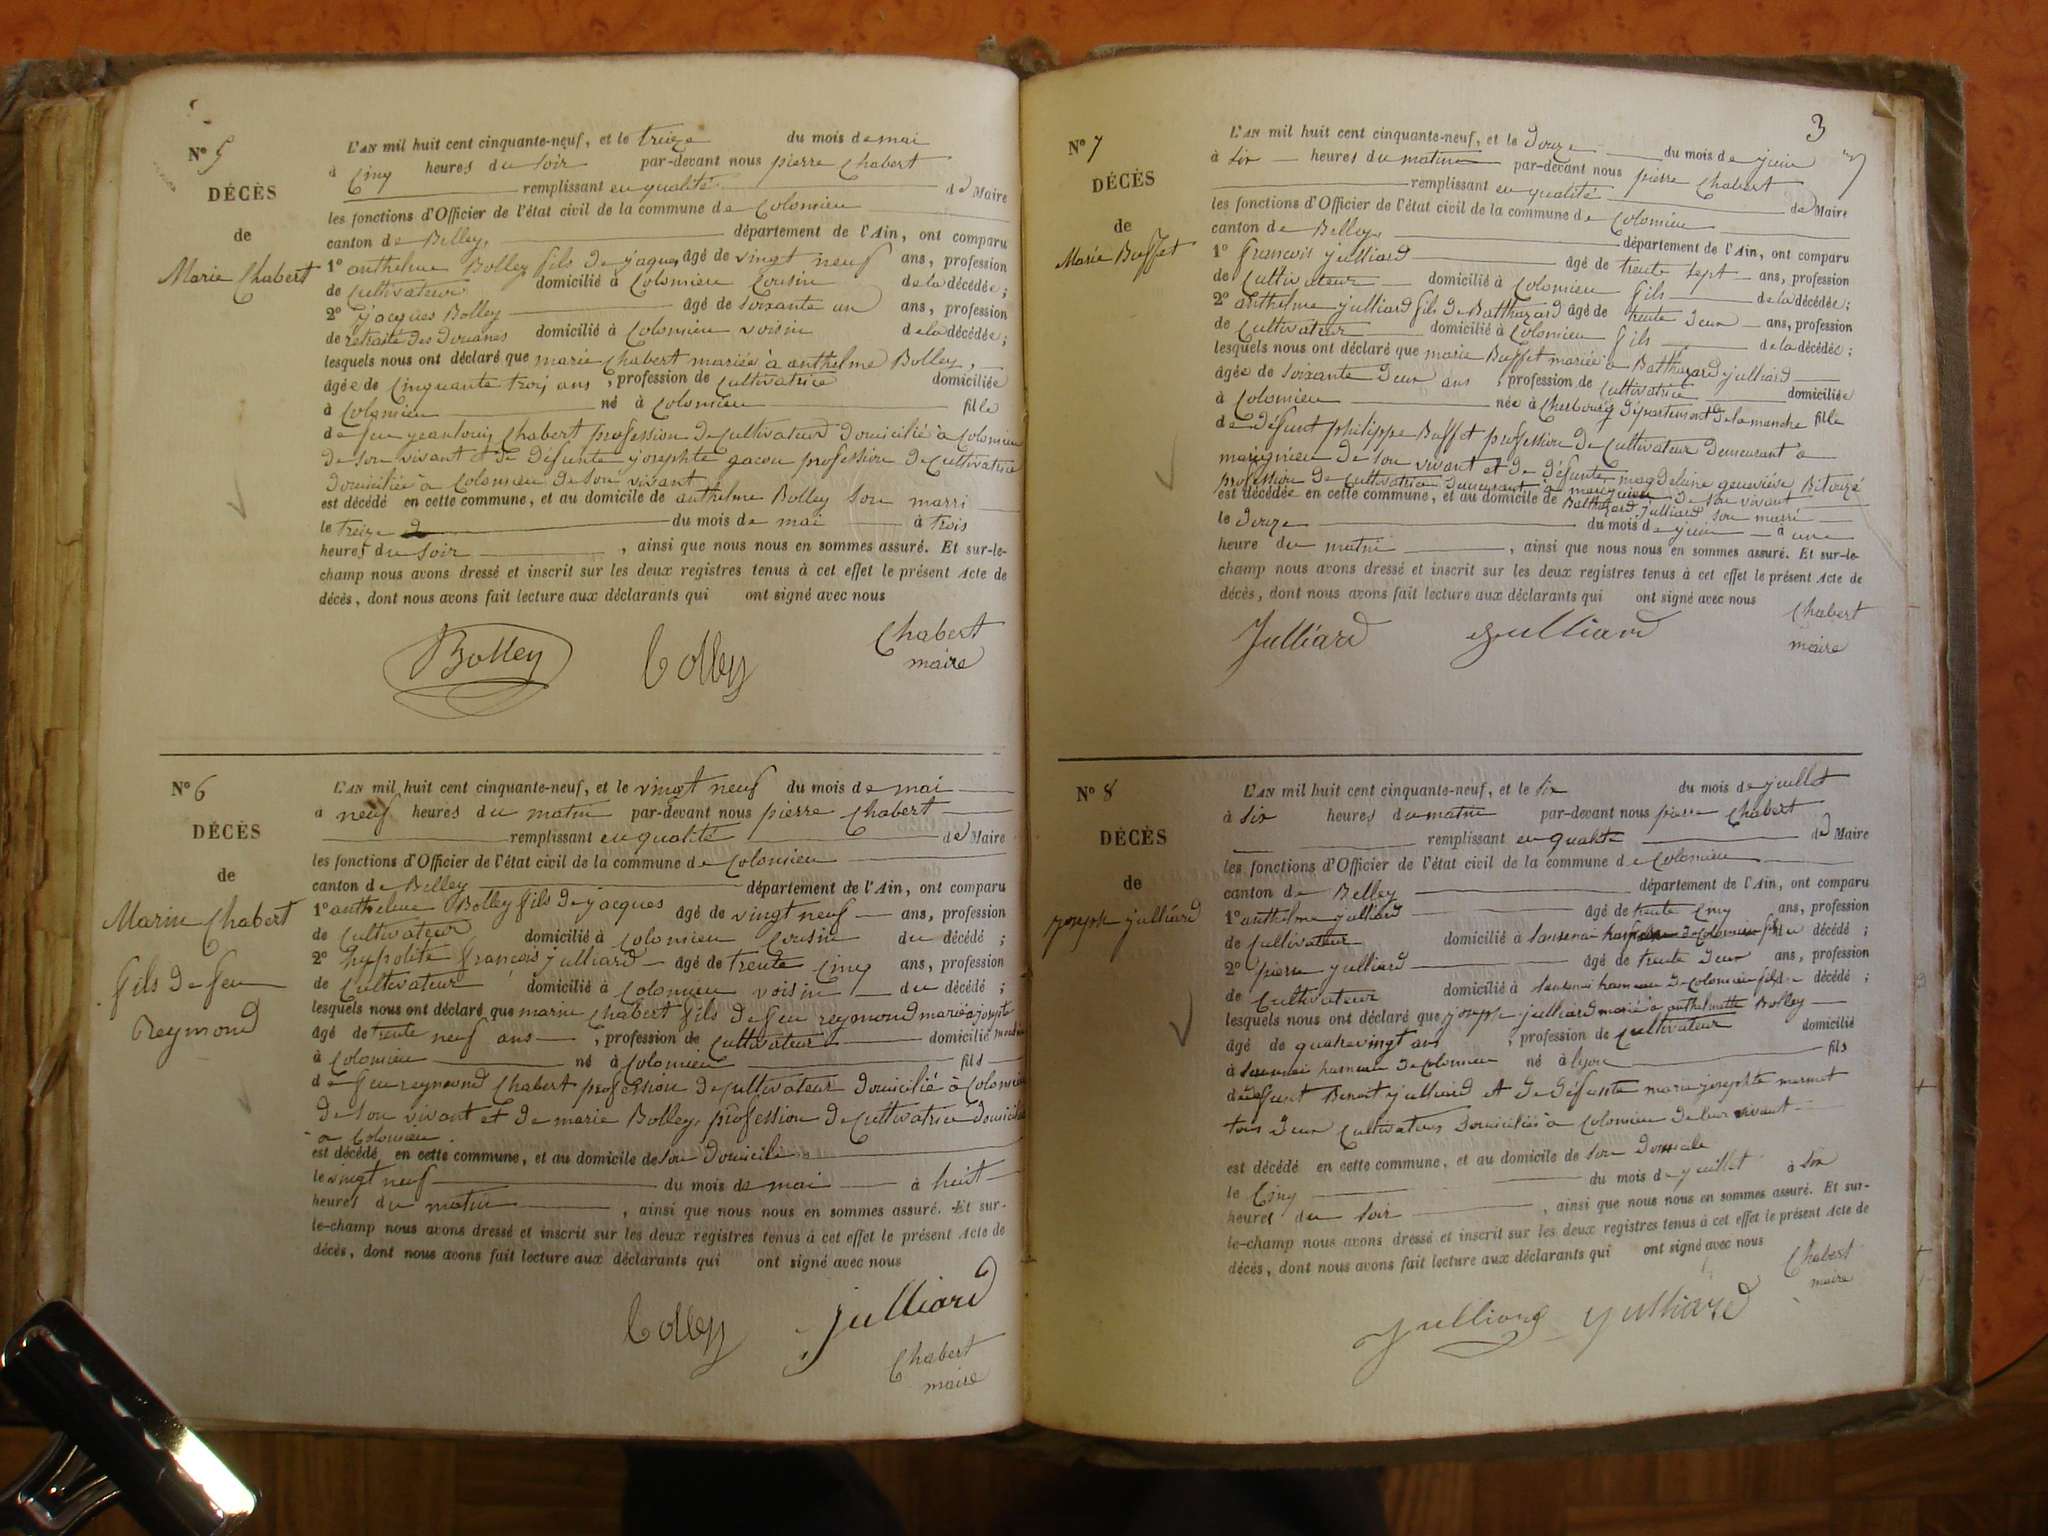 N° 5
DÉCÈS
de
Marie Chabert
L'AN mil huit cent cinquante-neuf, et le treize du mois de mai
à cinq heures du soir par-devant nous pierre Chabert
remplissant en qualité de Maire
les fonctions d'Officier de l'état civil de la commune de Colomieu
canton de Belley, département de l'Ain, ont comparu
1° anthelme Bolley fils de jaques âgé de vingt neuf ans, profession
de Cultivateur domicilié à Colomieu Cousin de la décédée;
2° jacques Bolley âgé de soixante un ans, profession
de retraité des Douanes domicilié à Colomieu voisin de la décédée;
lesquels nous ont déclaré que marie Chabert mariée à anthelme Bolley,
âgée de Cinquante trois ans, profession de Cultivatrice domiciliée
à Colomieu né à Colomieu fille
de feu Chabert profession de Cultivateur Domicilié à Colomieu
de son vivant et de défunte josephte gacon profession de Cultivatrice
Domiciliée a Colomieu de son vivant
est décédé en cette commune, et au domicile de anthelme Bolley son marri
le treize du mois de mai à trois
heures du soir, ainsi que nous nous en sommes assuré. Et sur-le-
champ nous avons dressé et inscrit sur les deux registres tenus à cet effet le présent Acte de
décès, dont nous avons fait lecture aux déclarants qui ont signé avec nous
Bolley bolley Chabert
maire
N° 6
DÉCÈS
de
Marin Chabert
fils de feu
Reymond
L'AN mil huit cent cinquante-neuf, et le vingt neuf du mois de mai
à neuf heures du matin par-devant nous pierre Chabert
remplissant en qualité de Maire
les fonctions d'Officier de l'état civil de la commune de Colomieu
canton de Belley département de l'Ain, ont comparu
1° anthelme Bolley fils de jacques âgé de vingt neuf ans, profession
de Cultivateur domicilié à Colomieu Cousin du décédé;
2° hypolite françois julliard âgé de trente Cinq ans, profession
de Cultivateur domicilié à Colomieu voisin du décédé;
lesquels nous ont déclaré que marin Chabert fils de feu reymond marié a josephte
âgé de trente neuf ans, profession de Cultivateur domicilié
à Colomieu né à Colomieu fils
de feu reymond Chabert profession de Cultivateur Domicilié à Colomieu
de son vivant et de marie Bolley, profession de Cultivatrice Domiciliée
a Colomieu.
est décédé en cette commune, et au domicile de son Domicile
le vingt neuf du mois de mai à huit
heures du matin, ainsi que nous nous en sommes assuré. Et sur-
le-champ nous avons dressé et inscrit sur les deux registres tenus à cet effet le présent Acte de
décès, dont nous avons fait lecture aux déclarants qui ont signé avec nous
bolley julliard
Chabert
maire
3
N° 7
DÉCÈS
de
Marie Buffet
L'AN mil huit cent cinquante-neuf, et le Douze du mois de juin
à six heures du matin par-devant nous pierre Chabert
remplissant en qualité de Maire
les fonctions d'Officier de l'état civil de la commune de Colomieu
canton de Belley, département de l'Ain, ont comparu
1° françois julliard âgé de trente sept ans, profession
de Cultivateur domicilié à Colomieu fils de la décédée;
2° anthelme julliard fils de Balthazard âgé de trente Deux ans, profession
de Cultivateur domicilié à Colomieu fils de la décédée;
lesquels nous ont déclaré que marie Buffet mariée à Balthazard julliard
âgée de soixante Deux ans, profession de Cultivatrice domiciliée
à Colomieu née à Cherbourg Département de la manche fille
de défunt philippe Buffet profession de Cultivateur Demeurant a
marignieu de son vivant et de défunte magdelaine geneviève Bitouzé
profession de Cultivatrice demeurant à marignieu de son vivant
est décédée en cette commune, et au domicile de Balthazard julliard son marri
le Douze du mois de juin à une
heure du matin, ainsi que nous nous en sommes assuré. Et sur-le-
champ nous avons dressé et inscrit sur les deux registres tenus à cet effet le présent Acte de
décès, dont nous avons fait lecture aux déclarants qui ont signé avec nous
Julliard Julliard Chabert
maire
N° 8
DÉCÈS
de
joseph julliard
L'AN mil huit cent cinquante-neuf, et le six du mois de juillet
à six heures du matin par-devant nous pierre Chabert
remplissant en qualité de Maire
les fonctions d'Officier de l'état civil de la commune de Colomieu
canton de Belley département de l'Ain, ont comparu
1° anthelme julliard âgé de trente Cinq ans, profession
de Cultivateur domicilié à hameau de Colomieu fils du décédé;
2° pierre julliard âgé de trente Deux ans, profession
de Cultivateur domicilié à hameau de Colomieu fils du décédé;
lesquels nous ont déclaré que joseph julliard marié à anthelmette Bolley
âgé de quatrevingt ans, profession de Cultivateur domicilié
à hameau de Colomieu né à lyon fils
de défunt Benoit julliard et de défunte marie josephte mermet
tous Deux Cultivateurs Domiciliés à Colomieu de leur vivant
est décédé en cette commune, et au domicile de son Domicile
le Cinq du mois de juillet à six
heures du soir, ainsi que nous nous en sommes assuré. Et sur-
le-champ nous avons dressé et inscrit sur les deux registres tenus à cet effet le présent Acte de
décès, dont nous avons fait lecture aux déclarants qui ont signé avec nous
Julliard julliard Chabert
maire